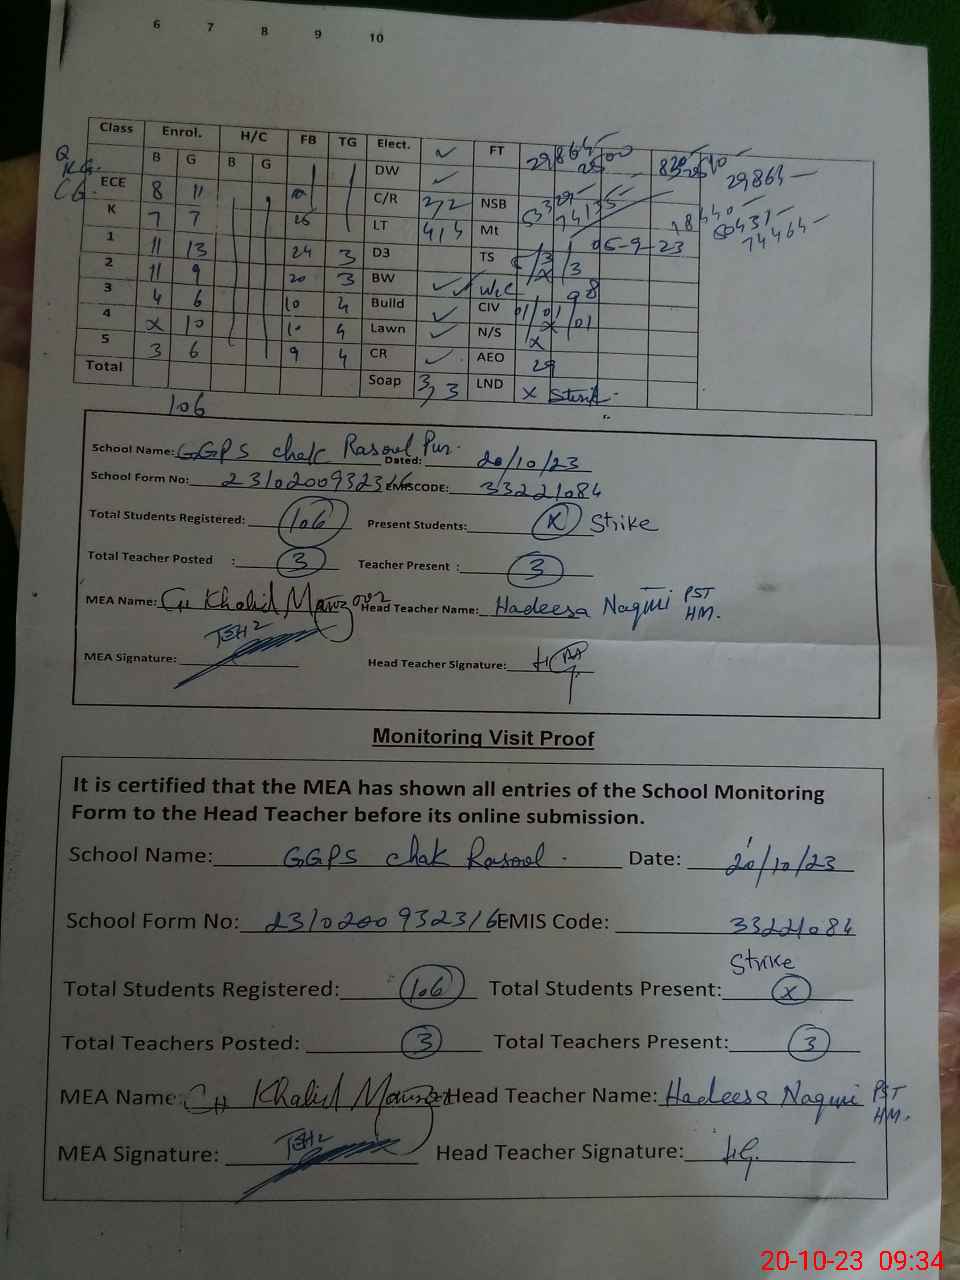 6 7 8 9 10
Class Enrol. H/C FB TG Elect. ✓ FT 29864 2500
B G B G DW ✓ 29864
ECE 8 11 C/R 2/2 NSB
K 7 7 25 LT 4/5 Mt 18440 50431 74464
1 11 13 24 3 D3 TS 05-9-23
2 11 9 20 3 BW ✓ w.c
3 4 6 10 4 Build ✓ CIV 01/01/01 98
4 x 10 10 4 Lawn ✓ N/S x
5 3 6 9 4 CR ✓ AEO 29
Total Soap 3/3 LND x
106
School Name: GGPS chak Rasool Pur. Dated: 20/10/23
School Form No: 2310200932316 EMISCODE: 33221084
Total Students Registered: 106 Present Students: x Strike
Total Teacher Posted : 3 Teacher Present : 3
MEA Name: CH Khalid Manzoor Head Teacher Name: Hadeesa Naqwi PST HM.
TEH2
MEA Signature: Head Teacher Signature:
Monitoring Visit Proof
It is certified that the MEA has shown all entries of the School Monitoring
Form to the Head Teacher before its online submission.
School Name: GGPS chak Rasool. Date: 20/10/23
School Form No: 2310200932316 EMIS Code: 33221084
Strike
Total Students Registered: 106 Total Students Present: x
Total Teachers Posted: 3 Total Teachers Present: 3
MEA Name: CH Khalid Manzoor Head Teacher Name: Hadeesa Naqwi PST HM.
TEH2
MEA Signature: Head Teacher Signature:
20-10-23 09:34